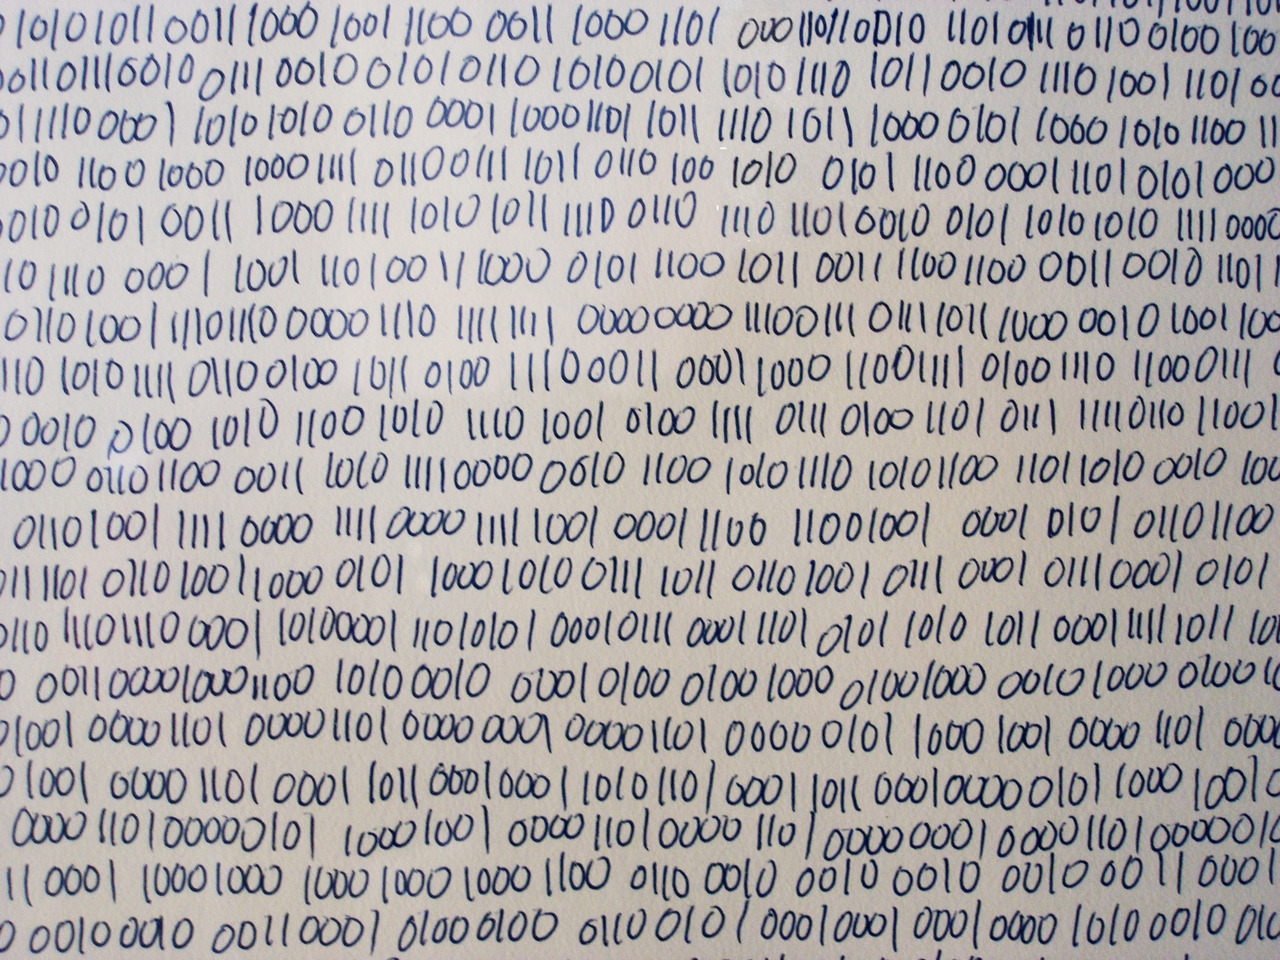 01010 1011 0011 1000 1001 1100 0011 1000 1101 0001101100010 1101 0111 0110 0100 100
0011 0111 0010 0111 0010 0101 0110 1010 0101 1010 1110 1011 0010 1110 1001 1101 00
01 1110 0001 1010 1010 0110 0001 1000 1101 1011 1110 1011 1000 0101 1000 1010 1100 11
0010 1100 1000 1000 1111 0110 0111 1011 0110 100 1010 0101 1100 0001 1101 0101 000
0010 0101 0011 1000 1111 1010 1011 1110 0110 1110 1101 0010 0101 1010 1010 1111 0000
10 1110 0001 1001 1101 0011 1000 0101 1100 1011 0011 1100 1100 0011 0010 1101
0110 1001 1110 1110 0000 1110 1111 1111 0000 0000 1110 0111 0111 1011 1000 0010 1001 100
110 1010 1111 0110 0100 1011 0100 1110 0011 0001 1000 1100 1111 0100 1110 1100 0111
0 0010 0100 1010 1100 1010 1110 1001 0100 1111 0111 0100 1101 0111 1111 0110 1100
1000 0110 1100 0011 1010 1111 0000 0010 1100 1010 1110 1010 1100 1101 1010 0010 100
0110 1001 1111 0000 1111 0000 1111 1001 0001 1100 1100 1001 0001 0101 0110 1100
011 1101 0110 1001 1000 0101 1000 1010 0111 1011 0110 1001 0111 0001 0111 0001 0101
0110 1110 1110 0001 1010 0001 1101 0101 0001 0111 0001 1101 0101 1010 1011 0001 1111 1011 10
0 0011 0000 1000 1100 1010 0010 0001 0100 0100 1000 0100 1000 0010 1000 0100 10
01001 0000 1101 0000 1101 0000 0001 0000 1101 0000 0101 1000 1001 0000 1101 0000
01001 0000 1101 0001 1011 0001 0001 1010 1101 0001 1011 0001 0000 0101 1000 1001 0
0000 1101 0000 0101 1000 1001 0000 1101 0000 1101 0000 0001 0000 1101 0000 010
11 0001 1000 1000 1000 1000 1000 1100 0110 0010 0010 0010 0010 0011 0001
0 0010 0010 0011 0001 0100 0100 0110 0101 0001 0001 0001 0000 1010 0010 010